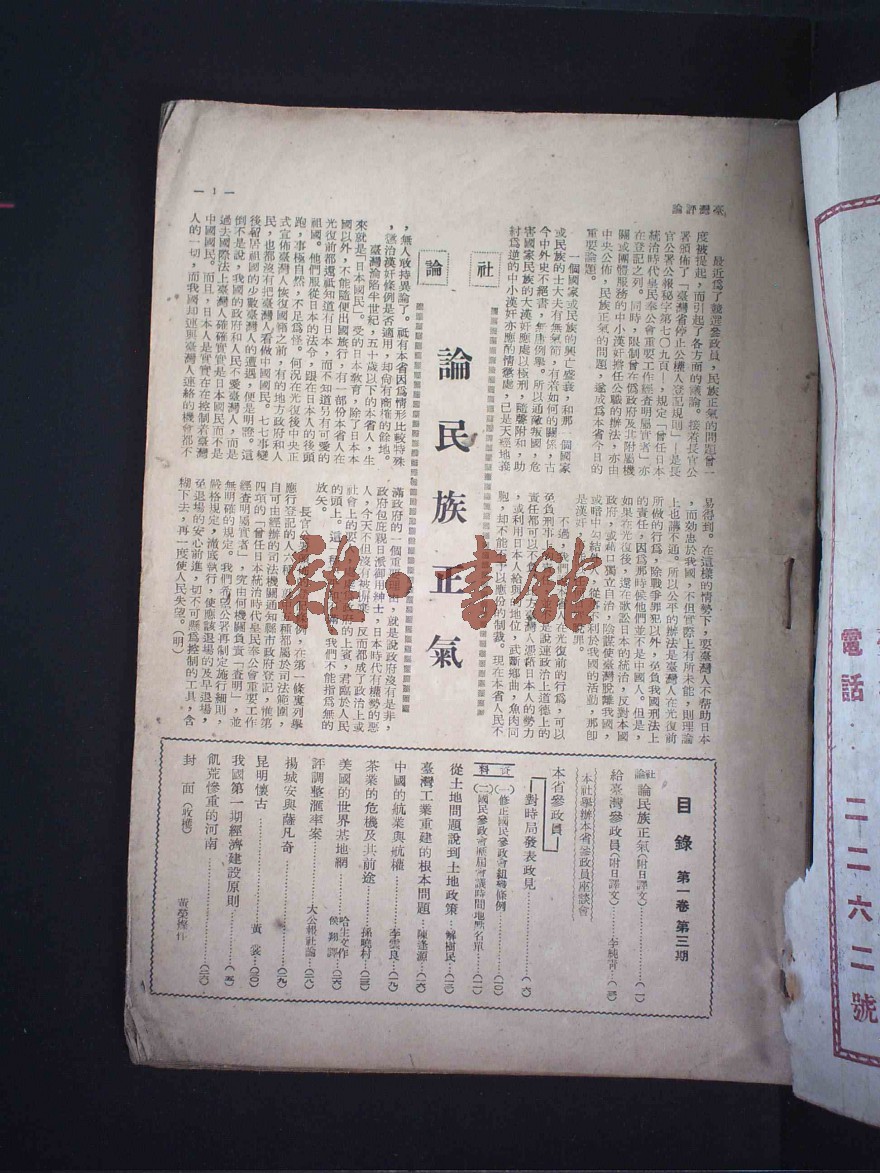 臺灣評論
— 1 —
社論
論民族正氣
最近爲了競選參政員,民族正氣的問題曾一
度被提起,而引起了各方面的議論。接着長官公
署頒佈了「臺灣省停止公權人登記規則」
官公署公報秘字第七〇九頁
統治時代皇民奉公會重要工作經查明屬實者」亦
在登記之列。同時,限制曾在僞政府及其附屬機
關或團體服務的中小漢奸擔任公職的辦法,亦由
中央公佈,民族正氣的問題,遂成爲本省今日的
重要論題。
一個國家或民族的興亡盛衰,和那一個國家
或民族的士大夫有無氣節,有着如何的關係,古
今中外史不絕書,無庸例舉。所以通敵叛國,危
害國家民族的大漢奸應處以極刑,隨聲附和,助
紂爲逆的中小漢奸亦應酌情懲處,已是天經地義
,無人敢持異論了。祇有本省因爲情形比較特殊
,懲治漢奸條例是否適用,却尙有商榷的餘地。
臺灣淪陷半世紀,五十歲以下的本省人,生
來就是「日本國民」。受的日本敎育,除了日本本
國以外,不能隨便出國旅行,有一部份本省人在
光復前都還祇知道有日本,而不知道另有可愛的
祖國。他們服從日本的法令,跟在日本人的後頭
跑,事極自然,不足爲怪。何況在光復後中央正
式宣佈臺灣人恢復國籍之前,有的地方政府和人
民,也都沒有把臺灣人看做中國國民。七七事變
後留居祖國的少數臺灣人的遭遇,便是明證。這
倒不是說,我國的政府和人民不愛臺灣人,而是
過去國際法上臺灣人確確實實是日本國民而不是
中國國民。而且,日本人是實實在在控制着臺灣
人的一切,而我國却連與臺灣人連絡的機會都不
易得到。在這樣的情勢下,要臺灣人不幫助日本
,而効忠於我國,不但實際上有所未能,則理論
上也講不通。所以公平的辦法是臺灣人在光復前
所做的行爲,除戰爭罪犯以外,免負我國刑法上
的責任,因爲那時候他們並不是中國人。但是,
如果在光復後,還在歌訟日本的統治,反對本國
政府,或藉口獨立自治,陰謀使臺灣脫離我國,
或暗中勾結日人,從事不利於我國的活動,那卽
是漢奸
不過,我們
免負刑事上的
責任都可以不負
,或利用日本人給與的地位,武斷鄉曲,魚肉同
胞,却不能不予以應份的制裁。現在本省人民不
滿政府的一個重要理由,就是說政府沒有是非,
政府包庇親日派御用紳士,日本時代有權勢的惡
人,今天不但沒有被摒棄,反而都成了政治上或
社會上的要人,
的頭上。這
放矢。
長官公署
應行登記的人六種,
自可由經辦的司法機關通知縣市政府登記,惟第
四項的「曾任日本統治時代皇民奉公會重要工作
經查明屬實者」,究由何機關負責「查明」,並
無明確的規定。我們希望公署再制定施行細則,
嚴格規定,澈底執行,使應該退場的及早退場,
免退場的安心前進,切不可懸爲控制的工具,含
糊下去,再一度使人民失望。(明)
目錄 第一卷 第三期
社論 論民族正氣(附日譯文)……(一)
給臺灣參政員(附日譯文)……李純青…(三)
本社舉辦本省參政員座談會
本省參政員
對時局發表政見……(六)
資料
(一)修正國民參政會組織條例……(一〇)
(二)國民參政會歷屆會議時間地點名單……(一一)
從土地問題說到土地政策……解樹民…(一三)
臺灣工業重建的根本問題…陳逢源…(一六)
中國的航業與航權……李雲良…(一九)
茶業的危機及其前途……孫曉村…(二一)
美國的世界基地網……哈生文作 侯翔譯…
評調整滙率案……大公報社論…
揚城安與薩凡奇……
昆明懷古……黃裳…
我國第一期經濟建設原則……
飢荒慘重的河南……
封面(收穫)……黃榮燦作
雜·書館
電話 二二六二號